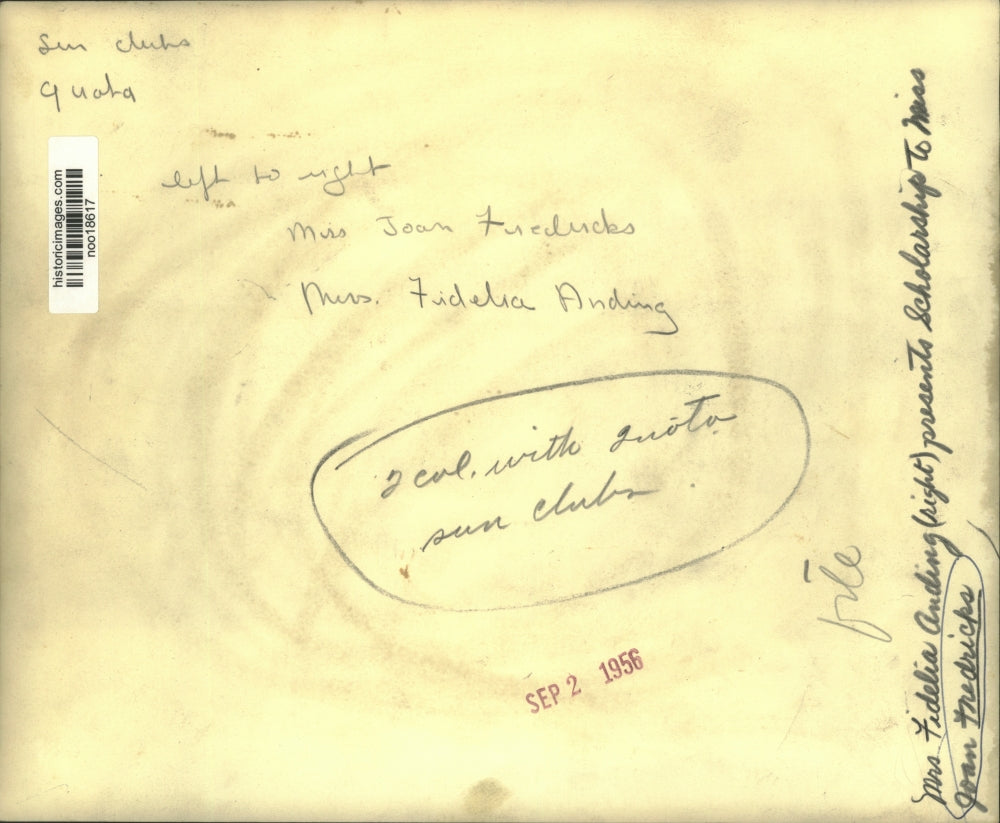 Sun clubs
Quota
historicimages.com
noo18617
left to right
Miss Joan Fredricks
Mrs. Fidelia Anding
2 col. with Quota
sun clubs
SEP 2 1956
file
Mrs Fidelia Anding (right) presents Scholarship to Miss
Joan Fredricks